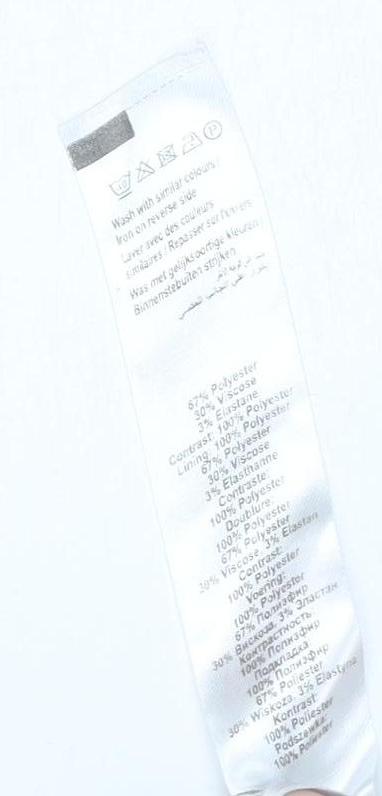 Wash with similar colours /
Iron on reverse side
Laver avec des couleurs
similaires / Repasser sur l'envers
Was met gelijksoortige kleuren
Binnenstebuiten strijken
67% Polyester
30% Viscose
3% Elastane
Contrast: 100% Polyester
Lining: 100% Polyester
67% Polyester
30% Viscose
3% Elasthanne
Contraste:
100% Polyester
Doublure:
100% Polyester
67% Polyester
30% Viscose, 3% Elastan
Contrast:
100% Polyester
Voering:
100% Polyester
67% Полиэфир
30% Вискоза, 3% Эластан
Контрастность
100% Полиэфир
Подкладка
100% Полиэфир
67% Poliester
30% Wiskoza, 3% Elastyna
Kontrast:
100% Poliester
Podszewka:
100% Poliester